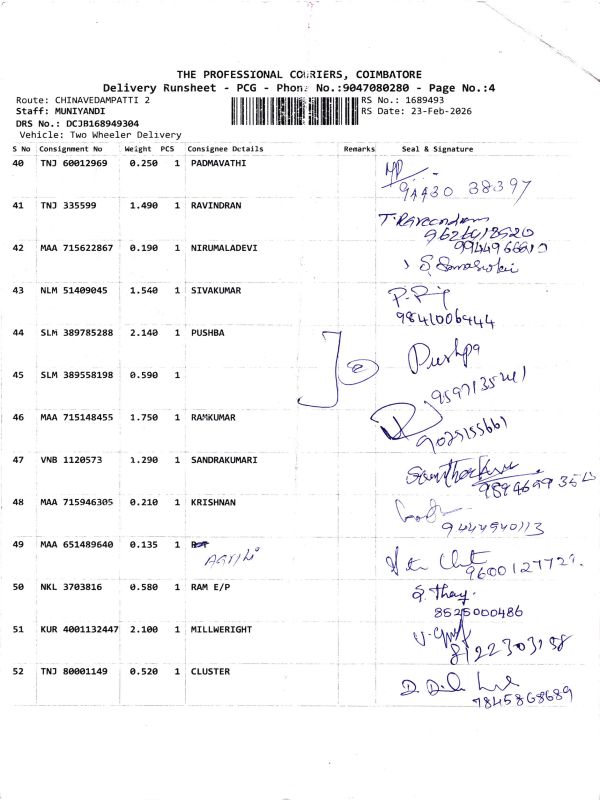 THE PROFESSIONAL COURIERS, COIMBATORE
Delivery Runsheet - PCG - Phone No.:9047080280 - Page No.:4
Route: CHINAVEDAMPATTI 2 RS No.: 1689493
Staff: MUNIYANDI RS Date: 23-Feb-2026
DRS No.: DCJB168949304
Vehicle: Two Wheeler Delivery
S No Consignment No Weight PCS Consignee Details Remarks Seal & Signature
40 TNJ 60012969 0.250 1 PADMAVATHI
94430 38397
41 TNJ 335599 1.490 1 RAVINDRAN
42 MAA 715622867 0.190 1 NIRUMALADEVI
43 NLM 51409045 1.540 1 SIVAKUMAR
9841006444
44 SLM 389785288 2.140 1 PUSHBA
2 Pushpa
45 SLM 389558198 0.590 1
46 MAA 715148455 1.750 1 RAMKUMAR
9025155661
47 VNB 1120573 1.290 1 SANDRAKUMARI
48 MAA 715946305 0.210 1 KRISHNAN
9444940113
49 MAA 651489640 0.135 1
50 NKL 3703816 0.580 1 RAM E/P
8525000486
51 KUR 4001132447 2.100 1 MILLWERIGHT
52 TNJ 80001149 0.520 1 CLUSTER
7845868689